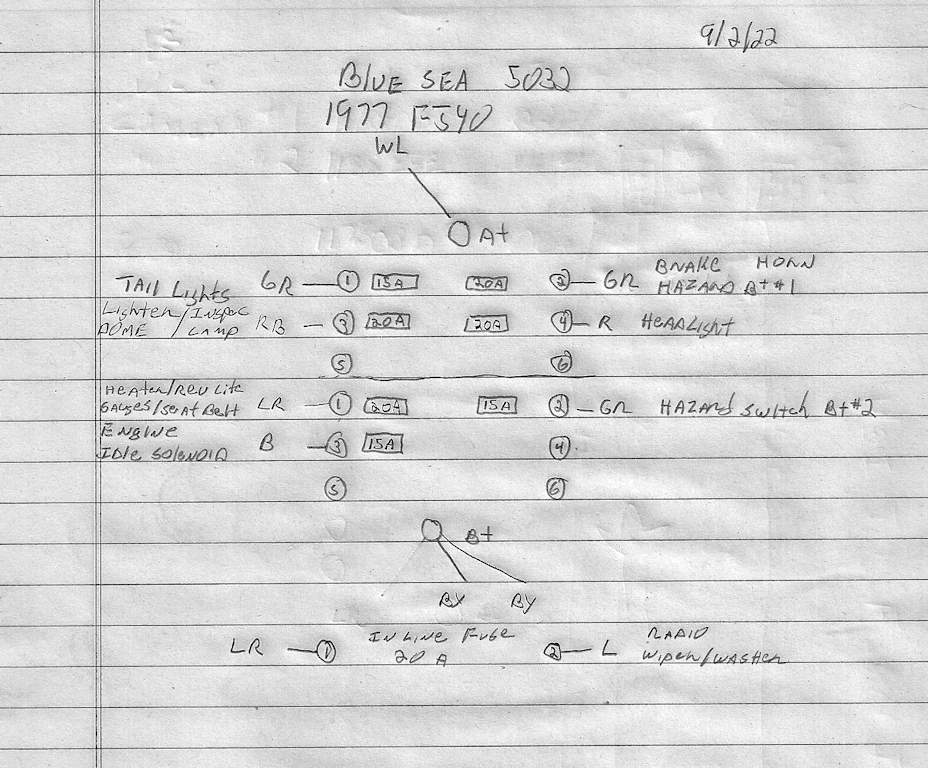 9/2/22
BLUE SEA 5032
1977 FJ40
WL
A+
TAIL Lights GR ① 15A 20A ② GR BRAKE HORN
HAZARD B+ #1
Lighter/INSpec
DOME / LAMP RB ③ 20A 20A ④ R HEADLight
⑤ ⑥
HEAter/REV Lite
GAUGES/SEAt BElt LR ① 20A 15A ② GR HAZARD SWItCh B+ #2
ENgINE
IDLE SOLENOID B ③ 15A ④
⑤ ⑥
B+
BY
LR ① IN LINE FUSE
20 A ② L RADIO
WIPER/WASHER